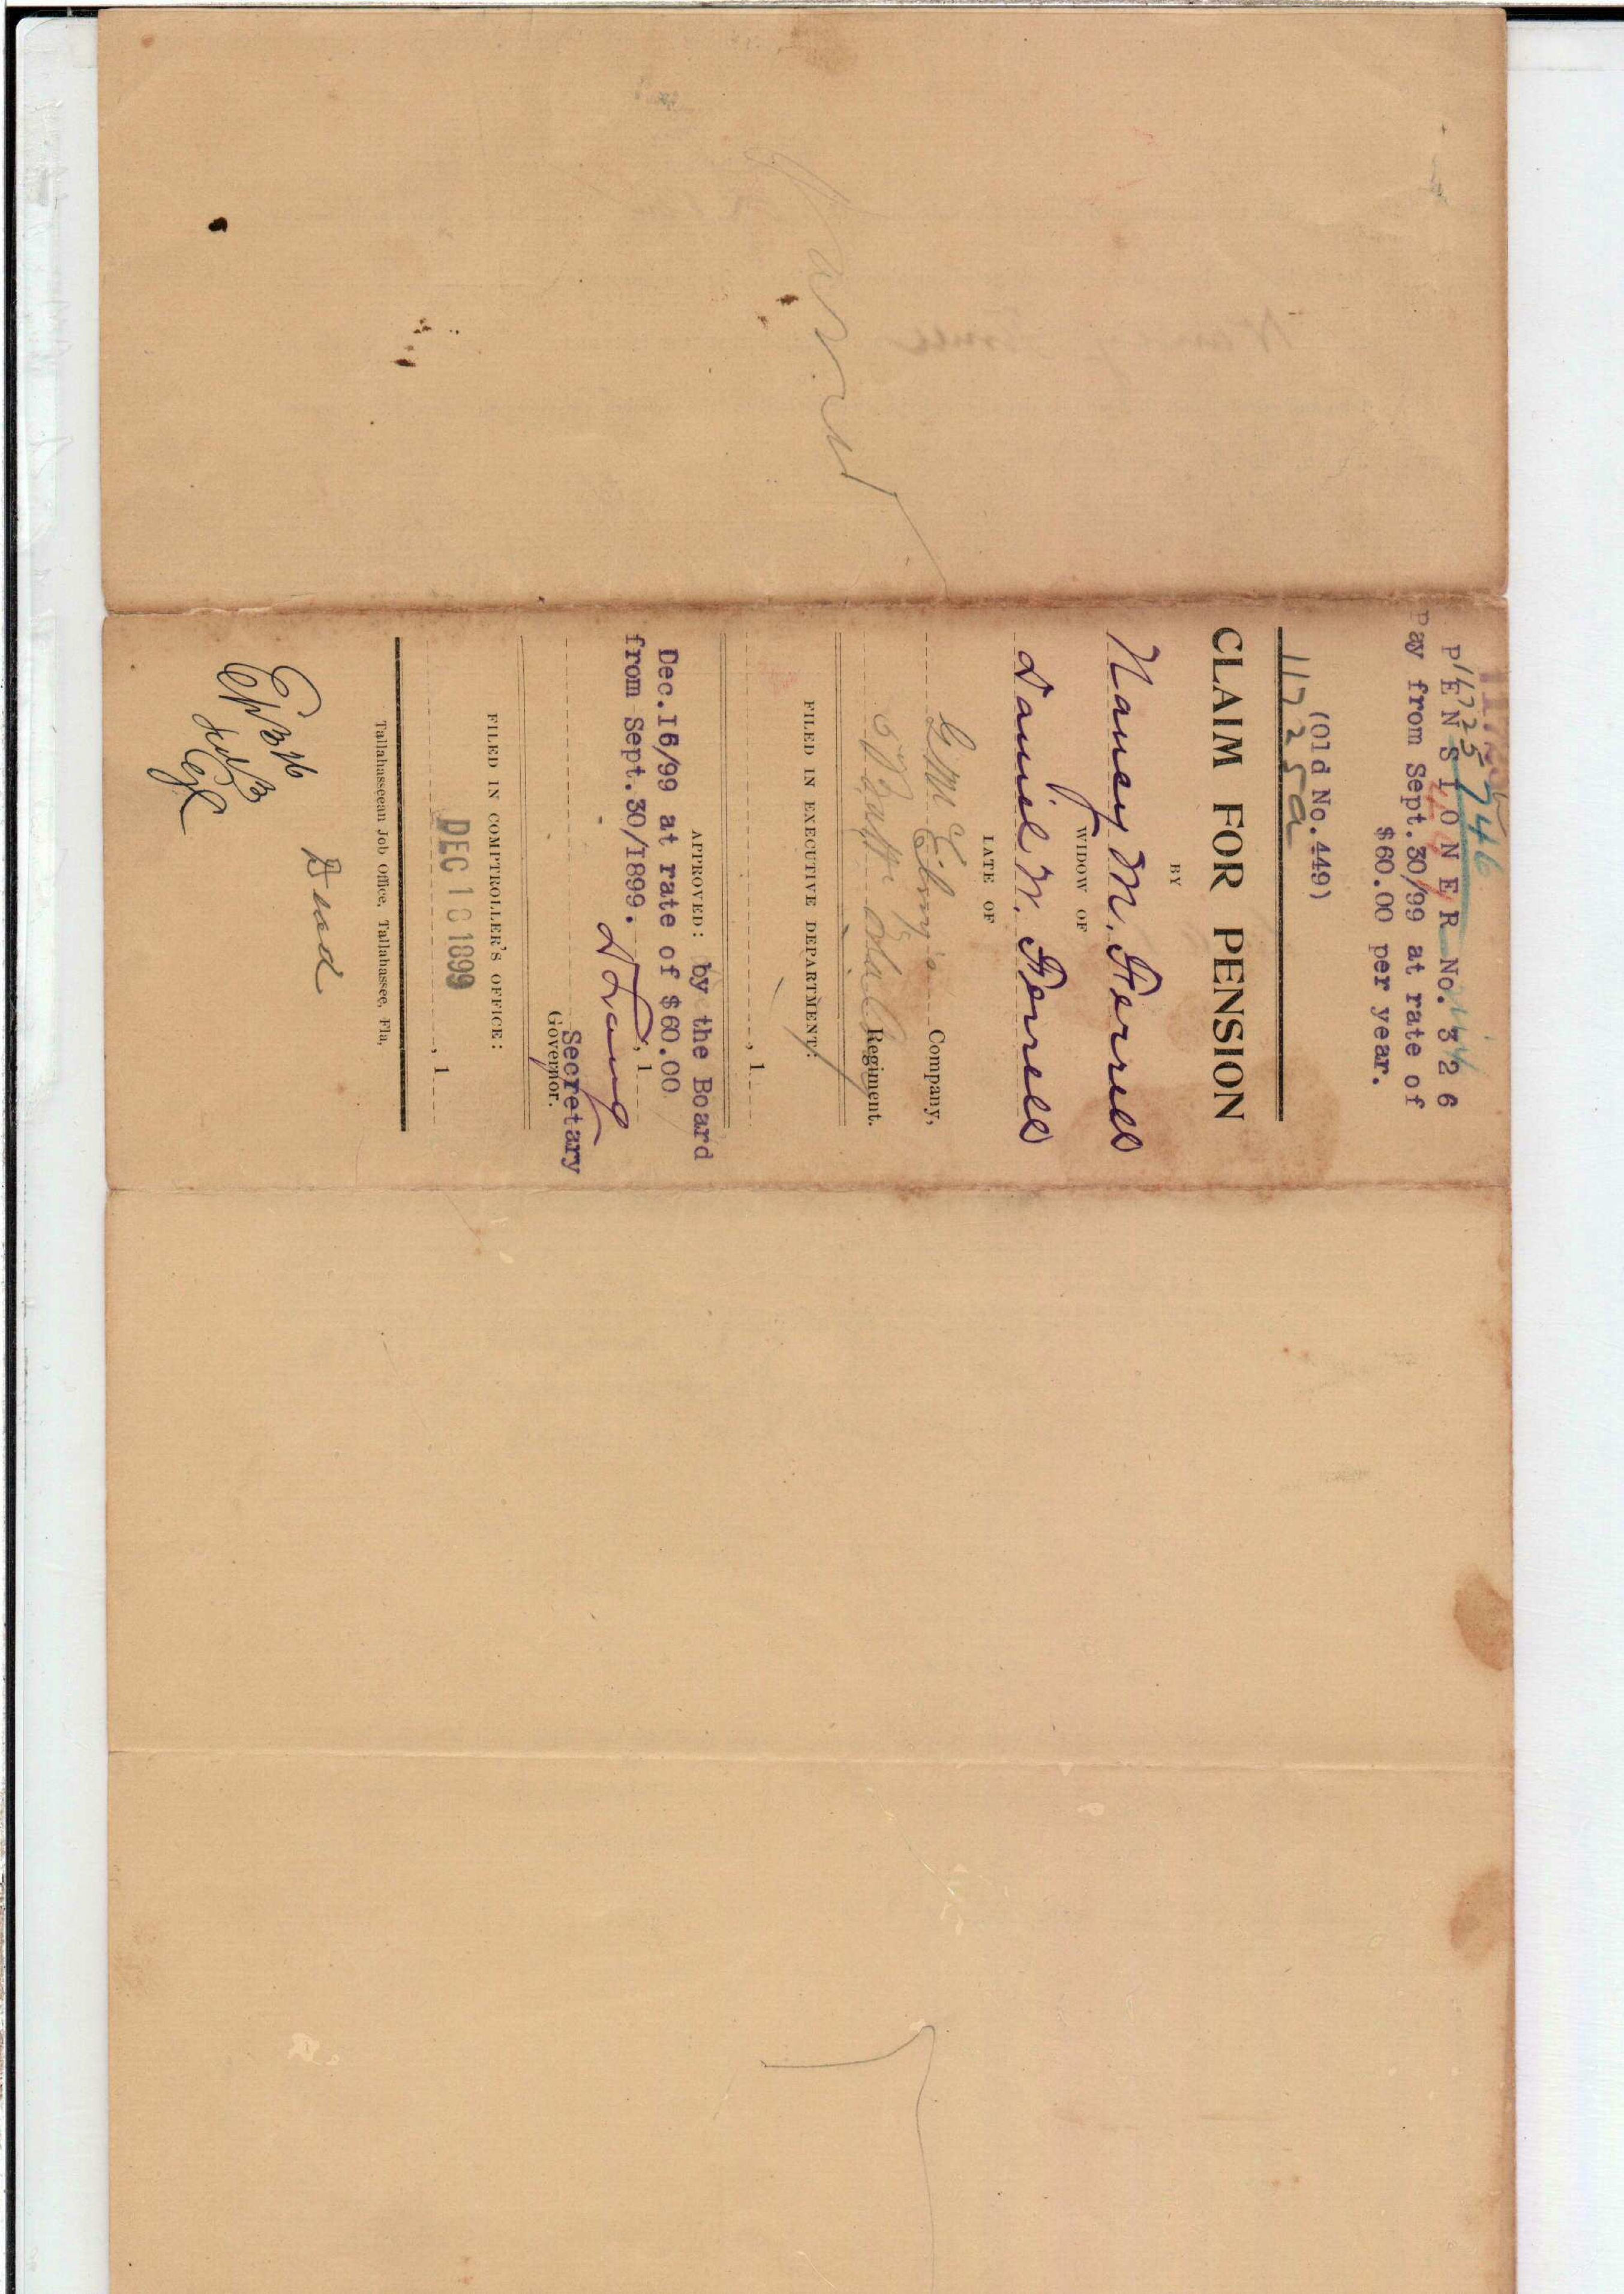 746
11725
PENSIONER No. 326
Pay from Sept.30/99 at rate of
$60.00 per year.
(Old No.449)
11725a
CLAIM FOR PENSION
BY
Nancy M. Ferrell
WIDOW OF
Daniel N. Ferrell
LATE OF
Company,
5" Batt
Regiment.
FILED IN EXECUTIVE DEPARTMENT:
, 1
APPROVED: by the Board
Dec.16/99 at rate of $60.00
from Sept.30/1899. , 1
D Lang
Secretary
Governor.
FILED IN COMPTROLLER'S OFFICE:
DEC 18 1899 , 1
Tallahasseean Job Office, Tallahassee, Fla.
Dead